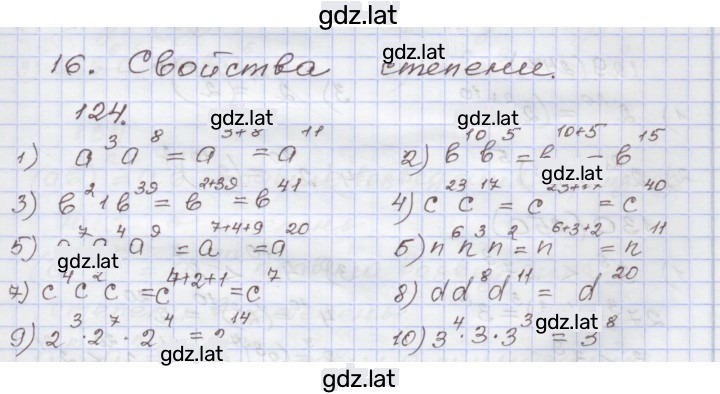 gdz.lat
16. Свойства степени.
gdz.lat
124. gdz.lat gdz.lat
1) a³a⁸ = a³⁺⁸ = a¹¹ 2) b¹⁰b⁵ = b¹⁰⁺⁵ = b¹⁵
gdz.lat
3) b²1b³⁹ = b²⁺³⁹ = b⁴¹ 4) c²³c¹⁷ = c²³⁺¹⁷ = c⁴⁰
5) a⁷a⁴a⁹ = a⁷⁺⁴⁺⁹ = a²⁰ 6) n⁶n³n² = n⁶⁺³⁺² = n¹¹
gdz.lat
7) c⁴c²c = c⁴⁺²⁺¹ = c⁷ 8) dd⁸d¹¹ = d²⁰
9) 2³·2⁷·2⁴ = 2¹⁴ 10) 3⁴·3·3³ = 3⁸
gdz.lat gdz.lat
gdz.lat